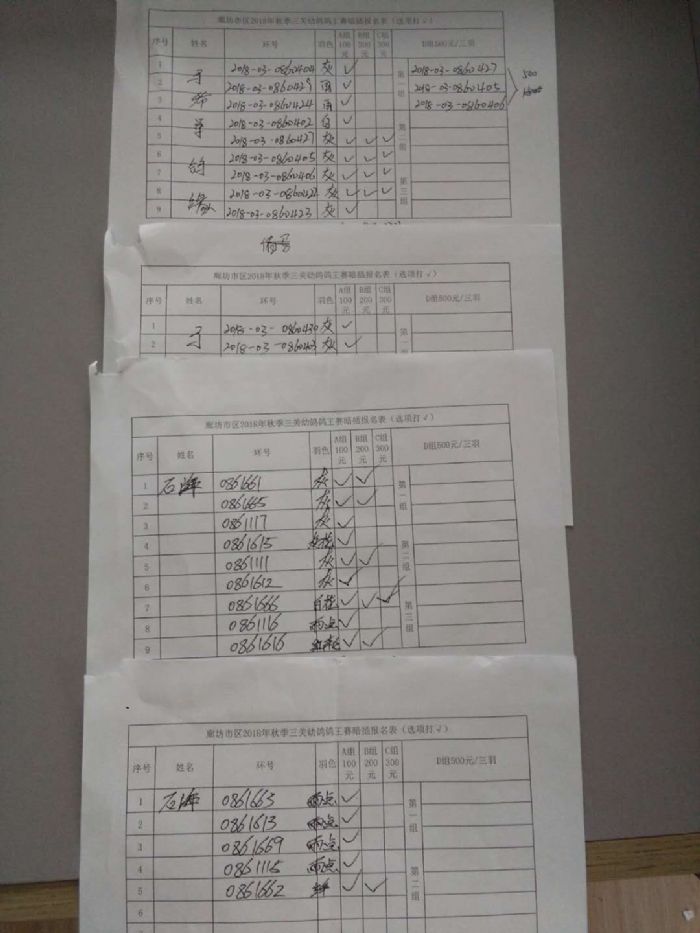 廊坊市区2018年秋季三关幼鸽鸽王赛暗插报名表（选项打√）
序号 姓名 环号 羽色 A组100元 B组200元 C组300元 D组500元/三羽
1 2018-03-0860404 灰 √ 第一组 2018-03-0860427
2 2018-03-0860429 雨 √ 2018-03-0860405 500
3 2018-03-0860424 雨 √ 2018-03-0860406
4 2018-03-0860402 白 √ 第二组
5 2018-03-0860427 灰 √ √ √
6 2018-03-0860405 灰 √ √ √
7 鸽 2018-03-0860406 灰 √ √ √ 第三组
8 缘 灰 √ √ √
9 2018-03-0860423 灰 √
廊坊市区2018年秋季三关幼鸽鸽王赛暗插报名表（选项打√）
序号 姓名 环号 羽色 A组100元 B组200元 C组300元 D组500元/三羽
1 2018-03-0860430 灰 √ 第一
2 2018-03-0860403 灰 √
廊坊市区2018年秋季三关幼鸽鸽王赛暗插报名表（选项打√）
序号 姓名 环号 羽色 A组100元 B组200元 C组300元 D组500元/三羽
1 石海 0861661 灰 √ √ 第一组
2 0861665 灰 √ √
3 0861117 灰 √
4 0861615 √ 第二组
5 0861111 灰 √ √
6 0861612 灰 √
7 0861666 白花 √ √ √ 第三组
8 0861116 雨点 √
9 0861616 √ √
廊坊市区2018年秋季三关幼鸽鸽王赛暗插报名表（选项打√）
序号 姓名 环号 羽色 A组100元 B组200元 C组300元 D组500元/三羽
1 石海 0861663 雨点 √ 第一组
2 0861613 雨点 √
3 0861669 雨点 √
4 0861115 雨点 √ 第二组
5 0861662 √ √
6